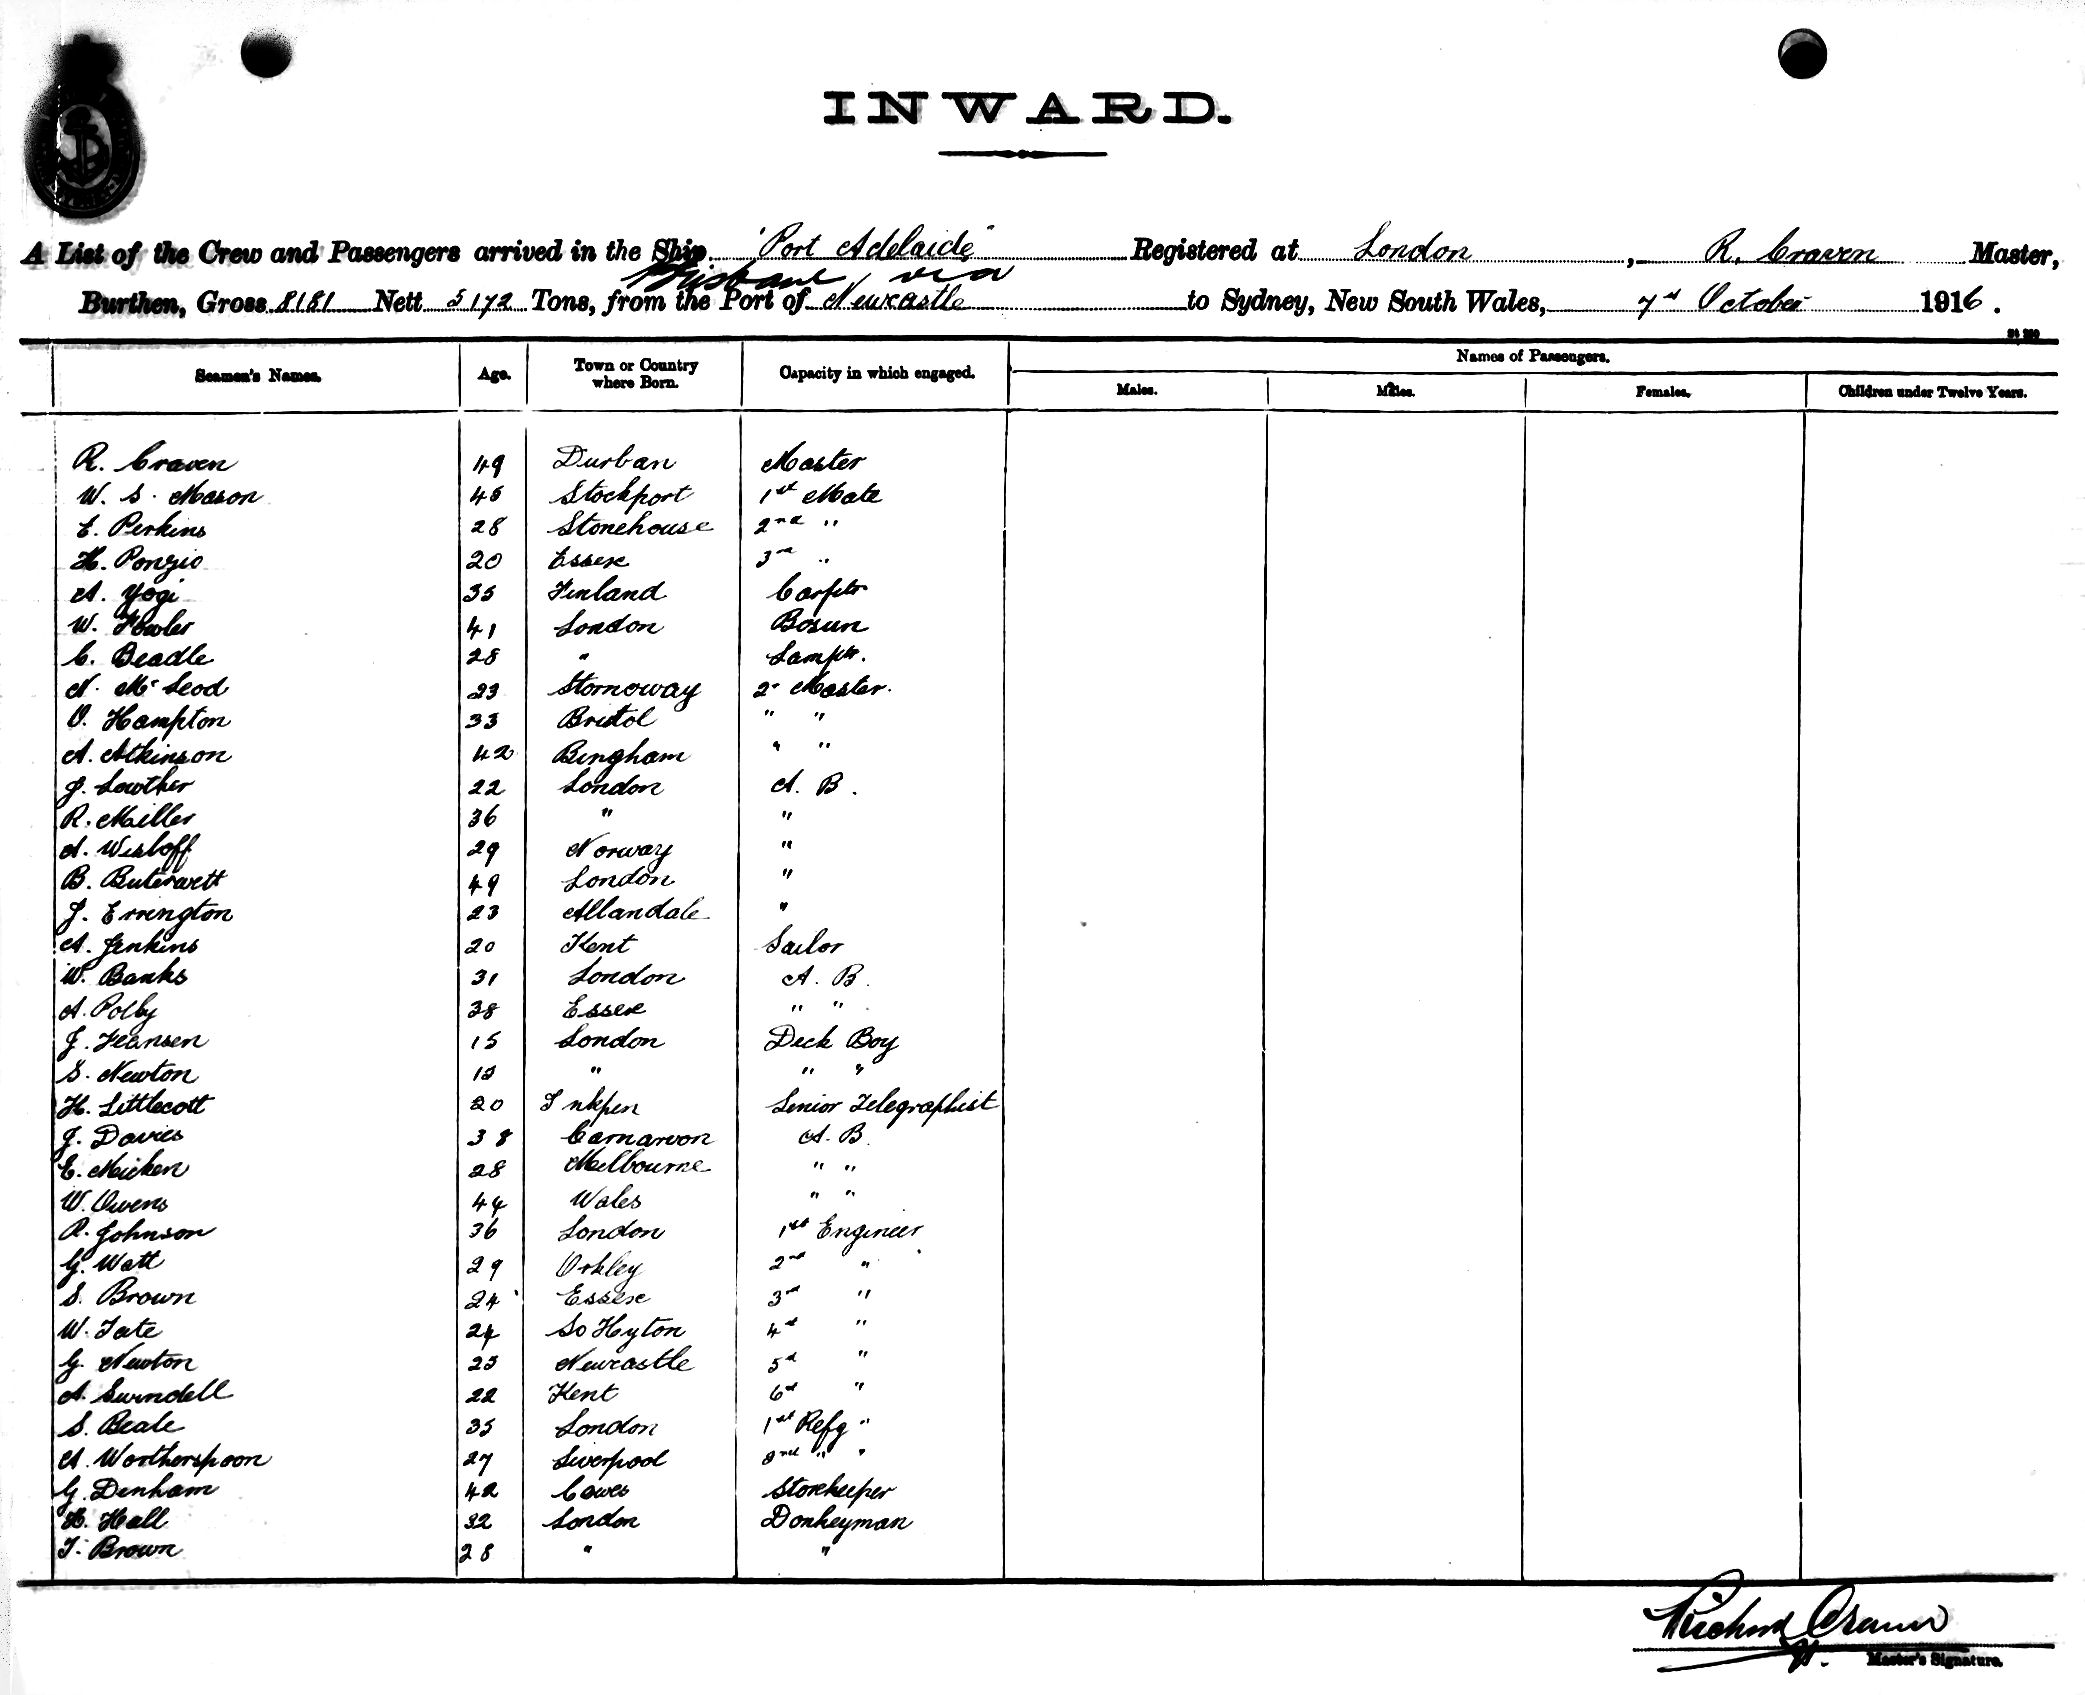 INWARD.
A List of the Crew and Passengers arrived in the Ship "Port Adelaide" Registered at London, R. Craven Master,
Brisbane, via
Burthen, Gross 8181 Nett 5172 Tons, from the Port of Newcastle to Sydney, New South Wales, 7th October 1916.
Names of Passengers.
Seamen's Names. Age. Town or Country where Born. Capacity in which engaged. Males. Males. Females. Children under Twelve Years.
R. Craven 49 Durban Master
W. S. Mason 45 Stockport 1st Mate
E. Perkins 28 Stonehouse 2nd "
H. Ponzio 20 Essex 3rd "
A. Yogi 35 Finland Carptr
W. Fowler 41 London Bosun
C. Beadle 28 " Lamptr.
N. McLeod 23 Stornoway 2r Master.
O. Hampton 33 Bristol " "
A. Atkinson 42 Bingham " "
J. Lowther 22 London A. B.
R. Miller 36 " "
A. Wisloff 29 Norway "
B. 49 London "
J. Errington 23 Allandale "
A. Jenkins 20 Kent Sailor
W. Banks 31 London A. B.
A. Polby 38 Essex " "
J. Hansen 15 London Deck Boy
S. Newton 15 " " "
H. Littlecott 20 Inkpen Senior Telegraphist
J. Davies 38 Carnarvon A. B.
E. Micken 28 Melbourne " "
W. Owens 44 Wales " "
R. Johnson 36 London 1st Engineer
G. Watt 29 Orkley 2nd "
S. Brown 24 Essex 3rd "
W. Tate 24 So Hyton 4th "
G. Newton 25 Newcastle 5th "
A. Swindell 22 Kent 6th "
S. Beale 35 London 1st Refg "
A. Wortherspoon 27 Liverpool 2nd " "
G. Denham 42 Cowes Storekeeper
H. Hall 32 London Donkeyman
T. Brown 28 " "
Richard Craven
Master's Signature.